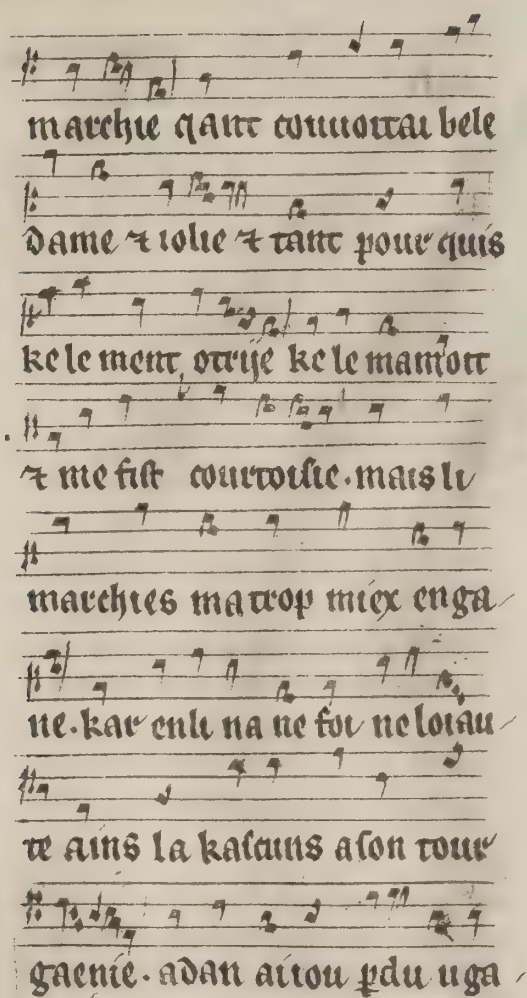 marchie qant couuoitai bele
dame ⁊ iolie ⁊ tant pour quis
ke le ment otrije ke le mamort
⁊ me fist courtoisie. mais li
marchies ma trop miex enga
ne. kar en li na ne foi ne loiau
te ains la kascuns a son tour
gaenie. adan ai iou ꝑdu u ga